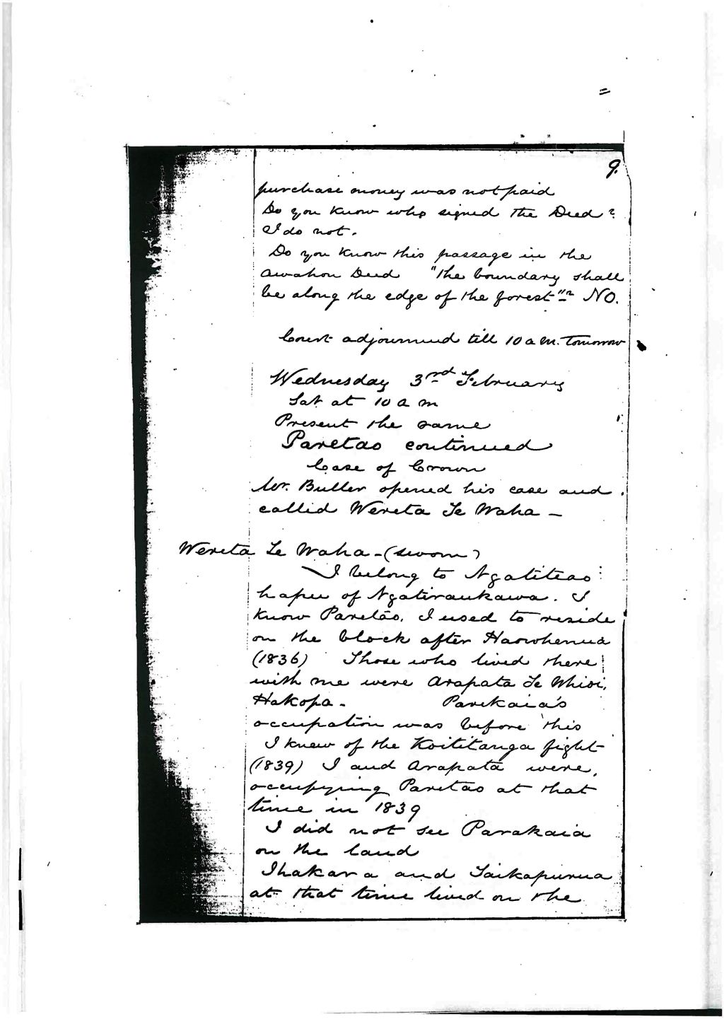 9.
purchase money was not paid
Do you know who signed the Deed?
I do not.
Do you know this passage in the
Awahou Deed "the boundary shall
be along the edge of the forest"? NO.
Court adjourned till 10 a.m. Tomorrow
Wednesday 3rd February
Sat at 10 a m
Present the same
Paretao continued
Case of Crown
Mr. Buller opened his case and
called Wereta Te Waha -
Wereta Te Waha - (sworn)
I belong to Ngatiteao
hapu of Ngatiraukawa. I
know Paretao. I used to reside
on the block after Haowhenua
(1836) Those who lived there
with me were Arapata Te Whioi,
Hakopa - Parikaia's
occupation was before this
I knew of the Koititanga fight
(1839) I and Arapata were,
occupying Paretao at that
time in 1839
I did not see Parakaia
on the land
Ihakara and Taikapurua
at that time lived on the